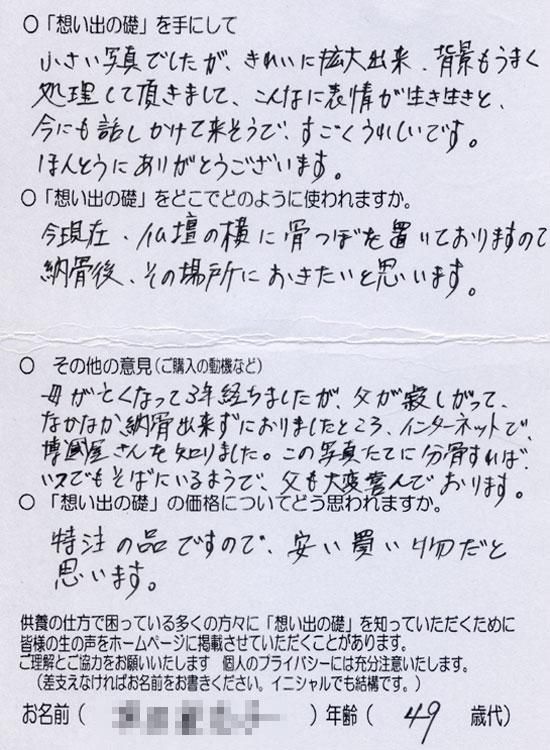 ○「想い出の礎」を手にして
小さい写真でしたが、きれいに拡大出来、背景もうまく
処理して頂きまして、こんなに表情が生き生きと、
今にも話しかけて来そうで、すごくうれしいです。
ほんとうにありがとうございます。
○「想い出の礎」をどこでどのように使われますか。
今現在、仏壇の横に骨つぼを置いておりますので
納骨後、その場所におきたいと思います。
○ その他の意見(ご購入の動機など)
母がとくなって3年経ちましたが、父が寂しがって、
なかなか納骨出来ずにおりましたところ、インターネットで、
博國屋さんを知りました。この写真たてに分骨すれば、
いつでもそばにいるようで、父も大変喜んでおります。
○「想い出の礎」の価格についてどう思われますか。
特注の品ですので、安い買い物だと
思います。
供養の仕方で困っている多くの方々に「想い出の礎」を知っていただくために
皆様の生の声をホームページに掲載させていただくことがあります。
ご理解とご協力をお願いいたします 個人のプライバシーには充分注意いたします。
(差支えなければお名前をお書きください。イニシャルでも結構です。)
お名前( )年齢( 49 歳代)